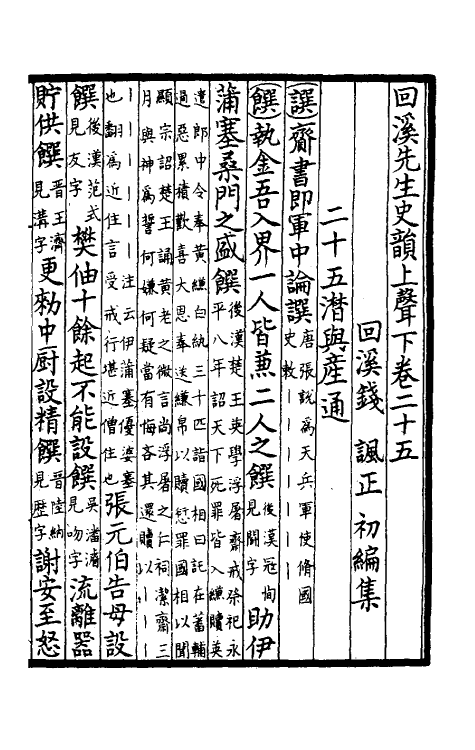 回溪先生史韻上聲下卷二十五
回溪錢 諷正初編集
二十五潸與產通
譔齎書即軍中論譔唐張説爲天兵軍使脩國史敕丨丨丨丨丨丨
饌執金吾入界一人皆兼二人之饌後漢冦恂見鬭字助伊
蒲塞桑門之盛饌後漢楚王英學浮屠齋戒祭祀永平八年詔天下死罪皆入縑贖英
遣郎中令奉黃縑白紈三十匹詣國相曰託在蕃輔過惡累積歡喜大恩奉送縑帛以贖愆罪國相以聞
顯宗詔楚王誦黃老之微言尚浮屠之仁祠潔齋三月與神爲誓何嫌何疑當有悔吝其還贖以丨丨
丨丨丨丨丨丨注云伊蒲塞優婆塞也翻爲近住言受戒行堪近僧住也張元伯告母設
饌後漢范式見友字樊伷十餘起不能設饌吳潘濬見吻字流離器
貯供饌晉王濟見溝字更勑中厨設精饌晉陸納見歷字謝安至怒